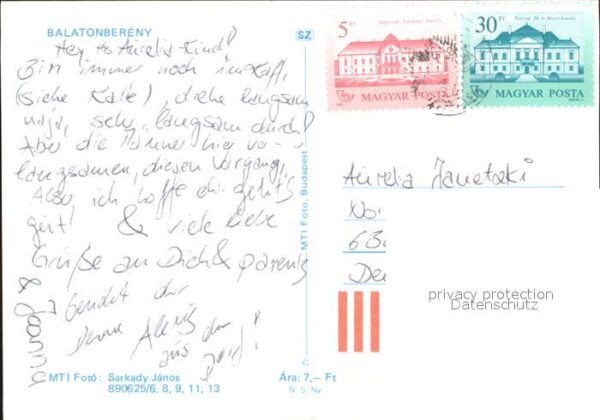 BALATONBERÉNY
SZ
Hey Ho Aurelia-Kind!
Bin immer noch im Kaff,
(siehe Karte), drehe langsam
naja, sehr langsam durch!
Aber die Männer hier
langsamen, diesen Vorgang,
Also ich hoffe dir geht's
gut! & viele liebe
Grüße an Dich & parents
sendet dir
Deine
aus dem
Dorf!
5 Ft
MAGYAR POSTA
30 Ft
MAGYAR POSTA
Aurelia Janetzki
No
63
De
privacy protection
Datenschutz
MTI Fotó, Budapest
MTI Fotó: Sarkady János
890625/6, 8, 9, 11, 13
Ára: 7,— Ft
N. S. Ny.